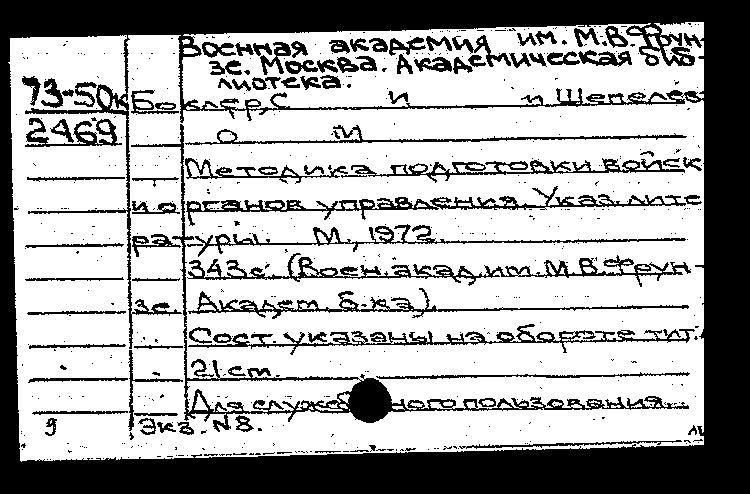 Военная академия им. М.В.Фрун-
зе. Москва. Академическая биб-
лиотека.
73-50к Боклер,С и и Шепелев
2469 о и
Методика подготовки войск
и органов управления. Указ. лите
ратуры. М., 1972.
343с. (Воен. акад. им. М.В.Фрун-
зе. Академ. б-ка).
Сост. указаны на обороте тит.
21 cm.
Для служебного пользования.
Экз. N8.